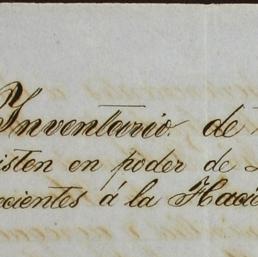 Inventario de
isten en poder de
ecientes á la Haci